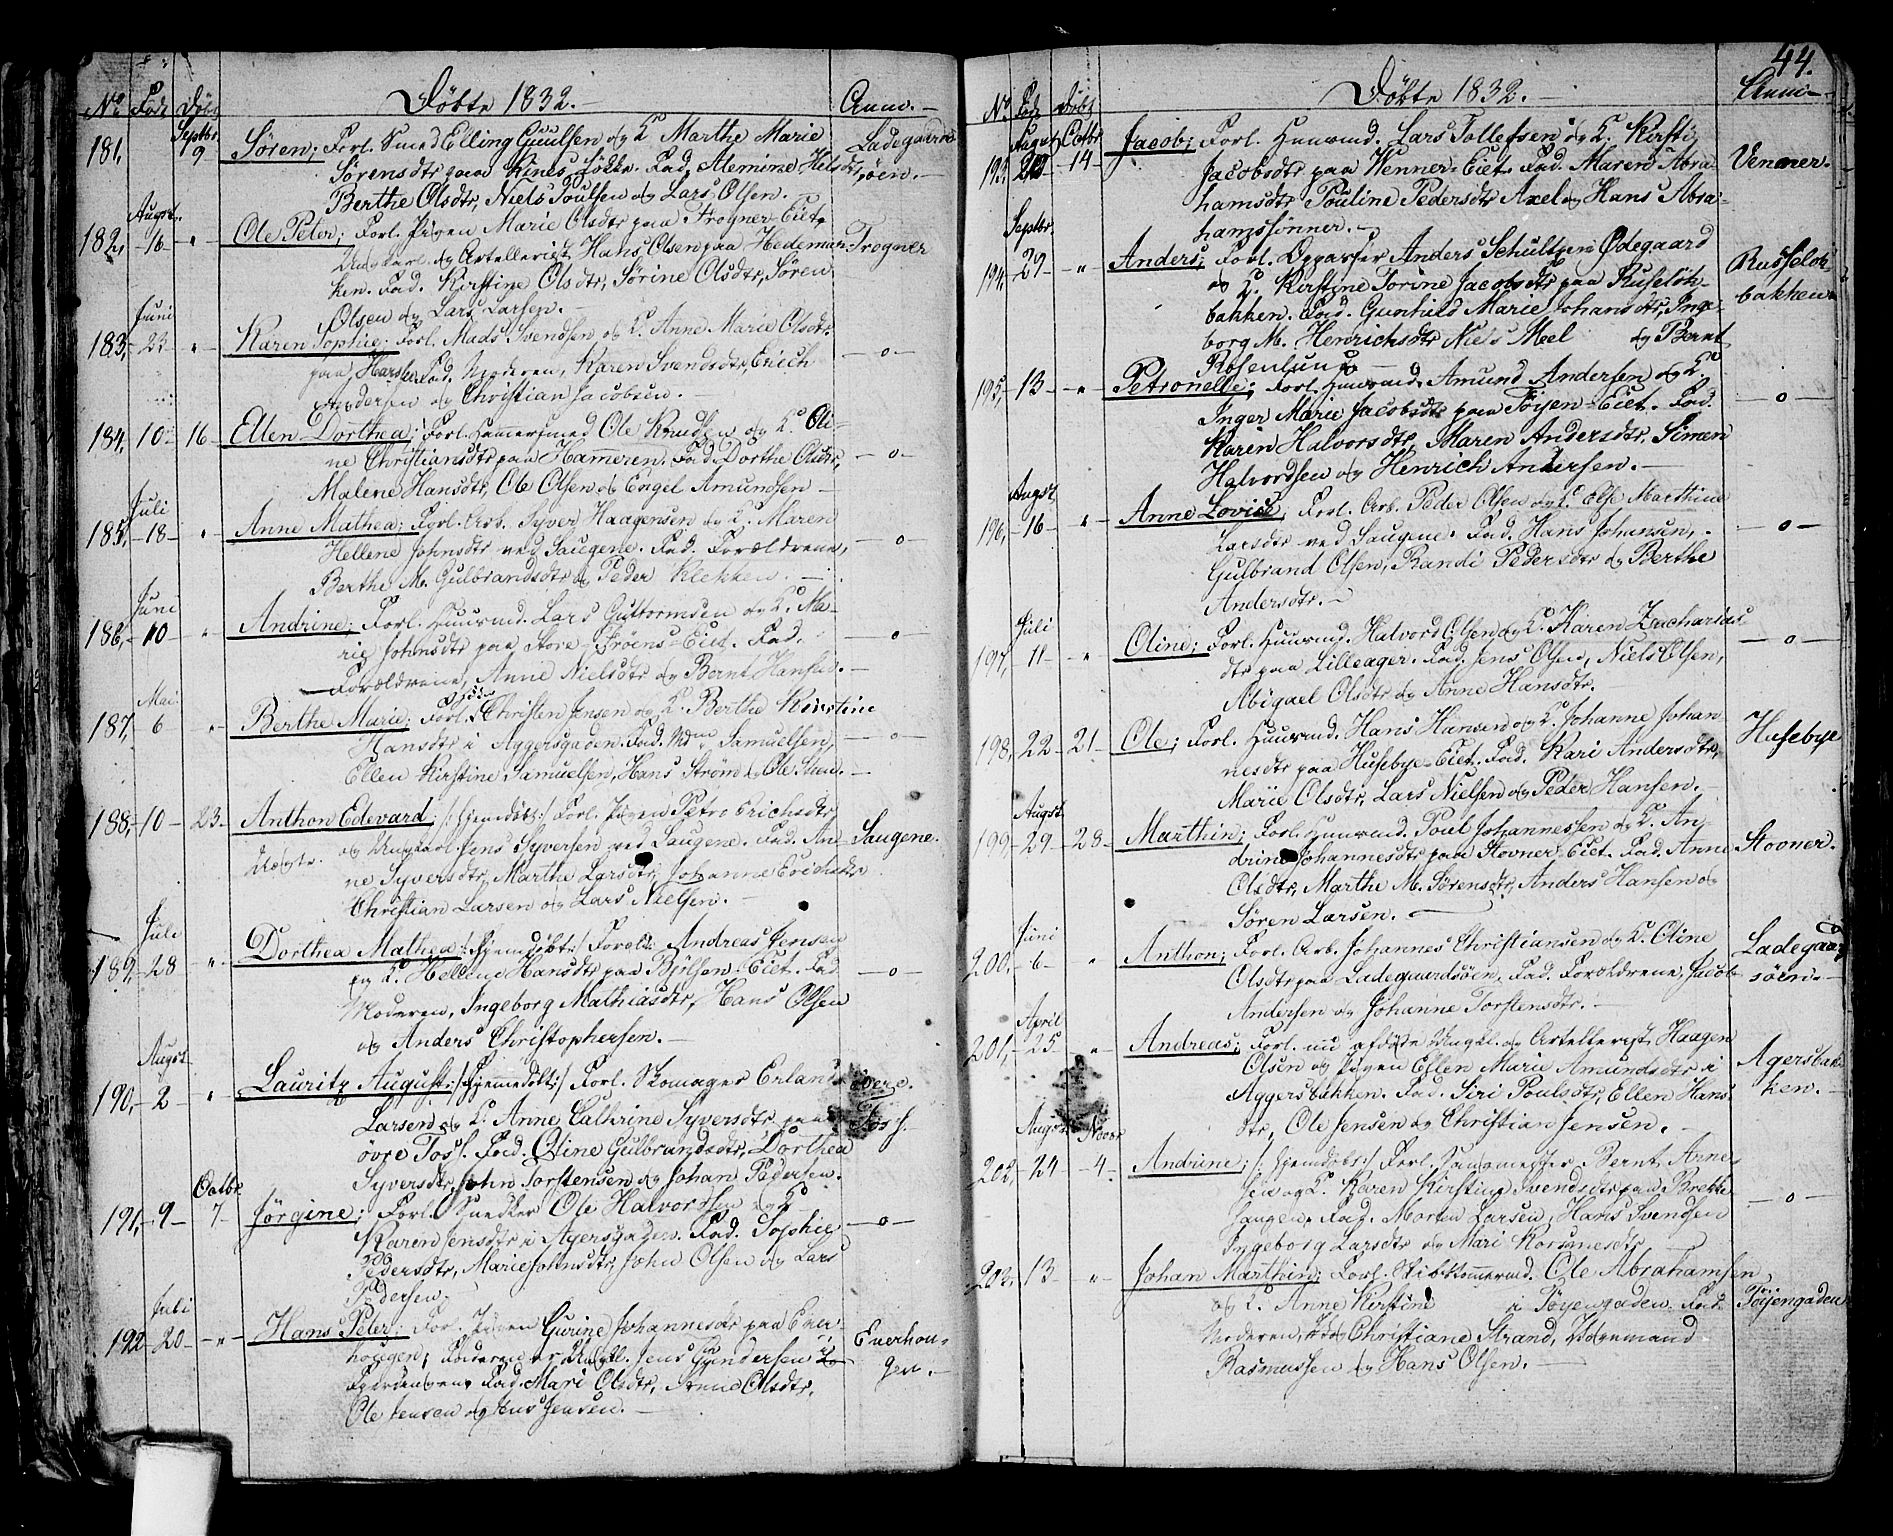 44.
No Fød Døbt Døbte 1832. Anm.
Septbr.
181, 9 Søren; Forl. Smed Elling Guulsen og K. Marthe Marie Ladegaards-
Sørensdtr paa Kines Løkke. Fad. Alemine Helsdtr, øen.
Berthe Olsdtr, Niels Poulsen og Lars Olsen.
Augst.
182, 16 " Ole Peter; Forl. Pigen Marie Olsdtr paa Frogner-Eiet, Frogner
Ungkarl og Artellerist Hans Olsen paa Hedemar-
ken. Fad. Kirstine Olsdtr, Sørine Olsdtr, Søren
Olsen og Lars Larsen.
Juni
183, 23 " Karen Sophie; Forl. Mads Svendsen og K. Anne Marie Olsdtr -o-
paa Fad. Moderen, Karen Svendsdtr, Erich
Andersen og Christian Jacobsen.
184, 10 16 Ellen Dorthea; Forl. Hammersmed Ole Knudsen og K. Oli-
ne Christiansdtr paa Hammeren. Fad. Dorthe Olsdtr, -o-
Malene Hansdtr, Ole Olsen og Engel Amundsen
Juli
185, 18 " Anne Mathea; Forl. Arb. Syver Haagensen og K. Maren
Hellene Johnsdtr ved Saugene. Fad. Forældrene, -o-
Berthe M. Gulbrandsdtr og Peder Klekken.
Juni
186, 10 " Andrine; Forl. Huusmd. Lars Guttormsen og K. Ma-
rie Johnsdtr paa Store-Frøens-Eiet. Fad. -o-
Forældrene, Anne Nielsdtr og Bernt Hansen.
Mai
187, 6 " Berthe Marie; Forl. Christen Jensen og K. Berthe Kirstine
Hansdtr i Aggersgaden. Fad. Mdm Samuelsen, -o-
Ellen Kirstine Samuelsen, Hans Strøm og Ole Steen.
188, 10 23 Anthon Edevard; /: Hjemdøbt :/ Forl. Pigen Petro Erichsdtr
Uægte. og Ungkarl Jens Syversen ved Saugene. Fad. An- Saugene.
ne Syversdtr, Marthe Larsdtr, Johanne Erichsdtr
Christian Larsen og Lars Nielsen.
Juli
189, 28 " Dorthea Mathea; /: Hjemdøbt :/ Foræld. Andreas Jensen
og K. Hellene Hansdtr paa Bjølsen-Eiet. Fad -o-
Moderen, Ingeborg Mathiasdtr, Hans Olsen
og Anders Christophersen.
Augst
190, 2 " Lauritz August; /: Hjemmedøbt :/ Forl. Skomager Erland Øvre
Larsen og K. Anne Cathrine Syversdtr paa Fos.
øvre Fos. Fad. Oline Gulbrandsdtr, Dorthea
Syversdtr, John Torstensen og Johan Pedersen.
Octbr.
191, 9 7 Jørgine; Forl. Snedker Ole Halvordsen og K. -o-
Karen Jensdtr i Agersgaden. Fad. Sophie
Pedersdtr, Marie Johnsdtr, John Olsen og Lars
Pedersen.
Juli
192 20 " Hans Peter; Forl. Pigen Gurine Johannesdtr paa Ener- Enerhou-
hougen; Faderen er Ungkl. Jens Gundersen gen.
Fad. Mari Olsdtr, Anne Olsdtr,
Ole Jensen og Hans Jensen.
No Fød Døbt Døbte 1832. Anm.
Augst Octbr
193, 29 14 Jacob; Forl. Huusmd. Lars Tollefsen og K. Kirsti
Jacobsdtr paa Venner-Eiet. Fad. Maren Abra- Venner.
hamsdtr Pouline Pedersdtr Axel og Hans Abra-
hamssønner.
Septbr.
194, 29 " Anders; Forl. Opparser Anders Schultzen Ødegaard Russeløk-
og K. Kirstine Torine Jacobsdtr paa Ruseløk- bakken.
bakken. Fad. Gunhild Marie Johansdtr, Inge-
borg M. Henrichsdtr Niels Meel og Bernt
Rosenlund.
195, 13 " Petronelle; Forl. Huusmd. Amund Andersen og K.
Inger Marie Jacobsdtr paa Tøyen-Eiet. Fad. -o-
Karen Halvorsdtr, Maren Andersdtr, Simen
Halvordsen og Henrich Andersen.
Augst
196, 16 " Anne Lovise; Forl. Arb. Peder Olsen og K. Else Marthine
Larsdtr ved Saugene. Fad. Hans Johansen, -o-
Gulbrand Olsen, Randi Pedersdtr og Berthe
Andersdtr.
Juli
197, 11 " Oline; Forl. Huusmd. Halvord Olsen og K. Karen Zacharias-
dtr paa Lilleager. Fad. Jens Olsen, Niels Olsen, -o-
Abigael Olsdtr og Anne Hansdtr.
198, 22 21 Ole; Forl. Huusmd. Hans Hansen og K. Johanne Johan- Husebye
nesdtr paa Husebye-Eiet. Fad. Kari Andersdtr,
Marie Olsdtr, Lars Nielsen og Peder Hansen.
Augst
199, 29 28 Marthin; Forl. Huusmd. Poul Johannessen og K. An-
drine Johannesdtr paa Stovner-Eiet. Fad. Anne Stovner.
Olsdtr, Marthe M. Sørensdtr, Anders Hansen og
Søren Larsen.
Juni
200, 6 " Anthon; Forl. Arb. Johannes Christiansen og K. Oline Ladegaards-
Olsdtr paa Ladegaardsøen. Fad. Forældrene, Jacob øen.
Andersen og Johanne Torstensdtr.
April
201, 25 " Andreas; Forl. nu afdøde Ungkl. og Artellerist Haagen
Olsen og Pigen Ellen Marie Amundsdtr i Agersbak-
Aggersbakken. Fad. Siri Poulsdtr, Ellen Hans- ken.
dtr, Ole Jensen og Christian Jensen.
Augst Novbr
202, 24 4 Andrine; /: Hjemdøbt :/ Forl. Saugmester Bernt Arne-
sen og K. Karen Kirstine Svendsdtr paa Brekke- -o-
Saugen. Fad. Morten Larsen, Hans Svendsen
Ingeborg Larsdtr og Mari Rasmusdtr
203, 13 " Johan Marthin; Forl. Skibstømmermd. Ole Abrahamsen
og K. Anne Kirstine i Tøyengaden. Fad. Tøiengaden
Moderen, Christiane Strand,
Rasmussen og Hans Olsen.